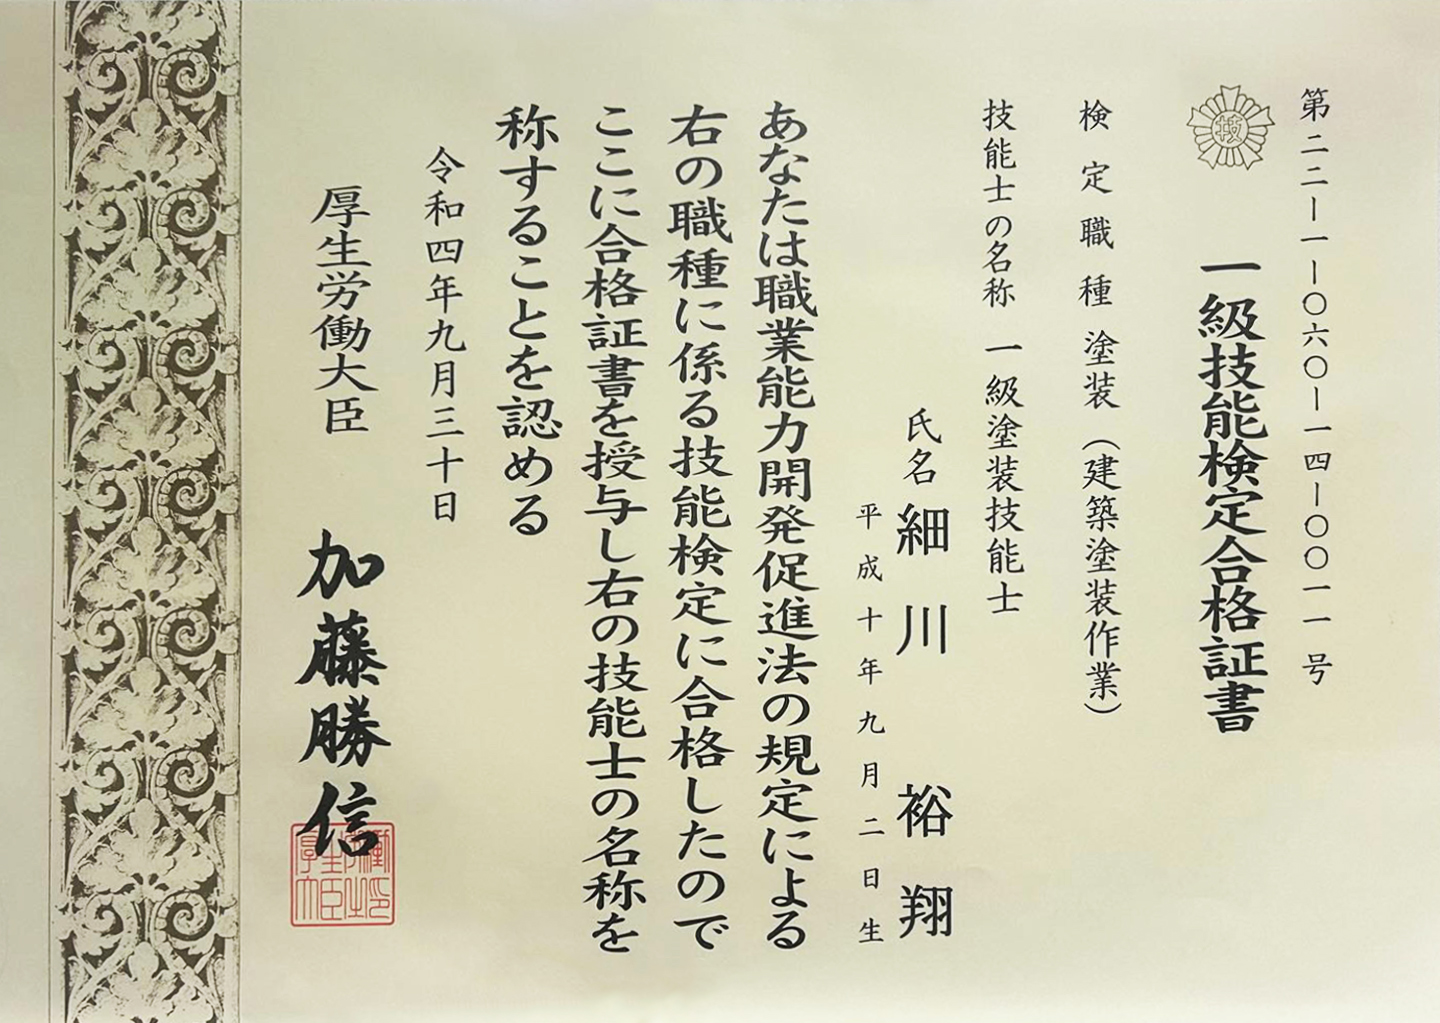 第二二ー一ー〇六〇ー一四ー〇〇一一号
技
一級技能検定合格証書
検定職種 塗装（建築塗装作業）
技能士の名称 一級塗装技能士
氏名 細川 裕翔
平成十年九月二日生
あなたは職業能力開発促進法の規定による
右の職種に係る技能検定に合格したので
ここに合格証書を授与し右の技能士の名称を
称することを認める
令和四年九月三十日
厚生労働大臣 加藤勝信